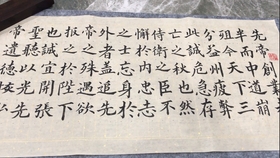 先帝創業
半而中道崩
殂今天下三
分益州疲弊
此誠危急存
亡之秋也然
侍衛之臣不
懈於內忠志
之士忘身於
外者盖追先
帝之殊遇欲
报之於陛下
也誠宜開張
聖聽以光先
帝遺德恢弘